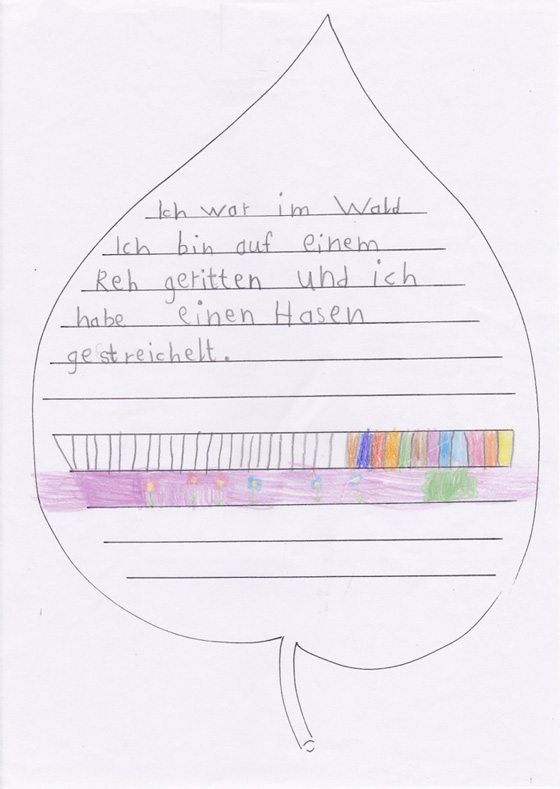 Ich war im Wald
Ich bin auf einem
Reh geritten und ich
habe einen Hasen
gestreichelt.